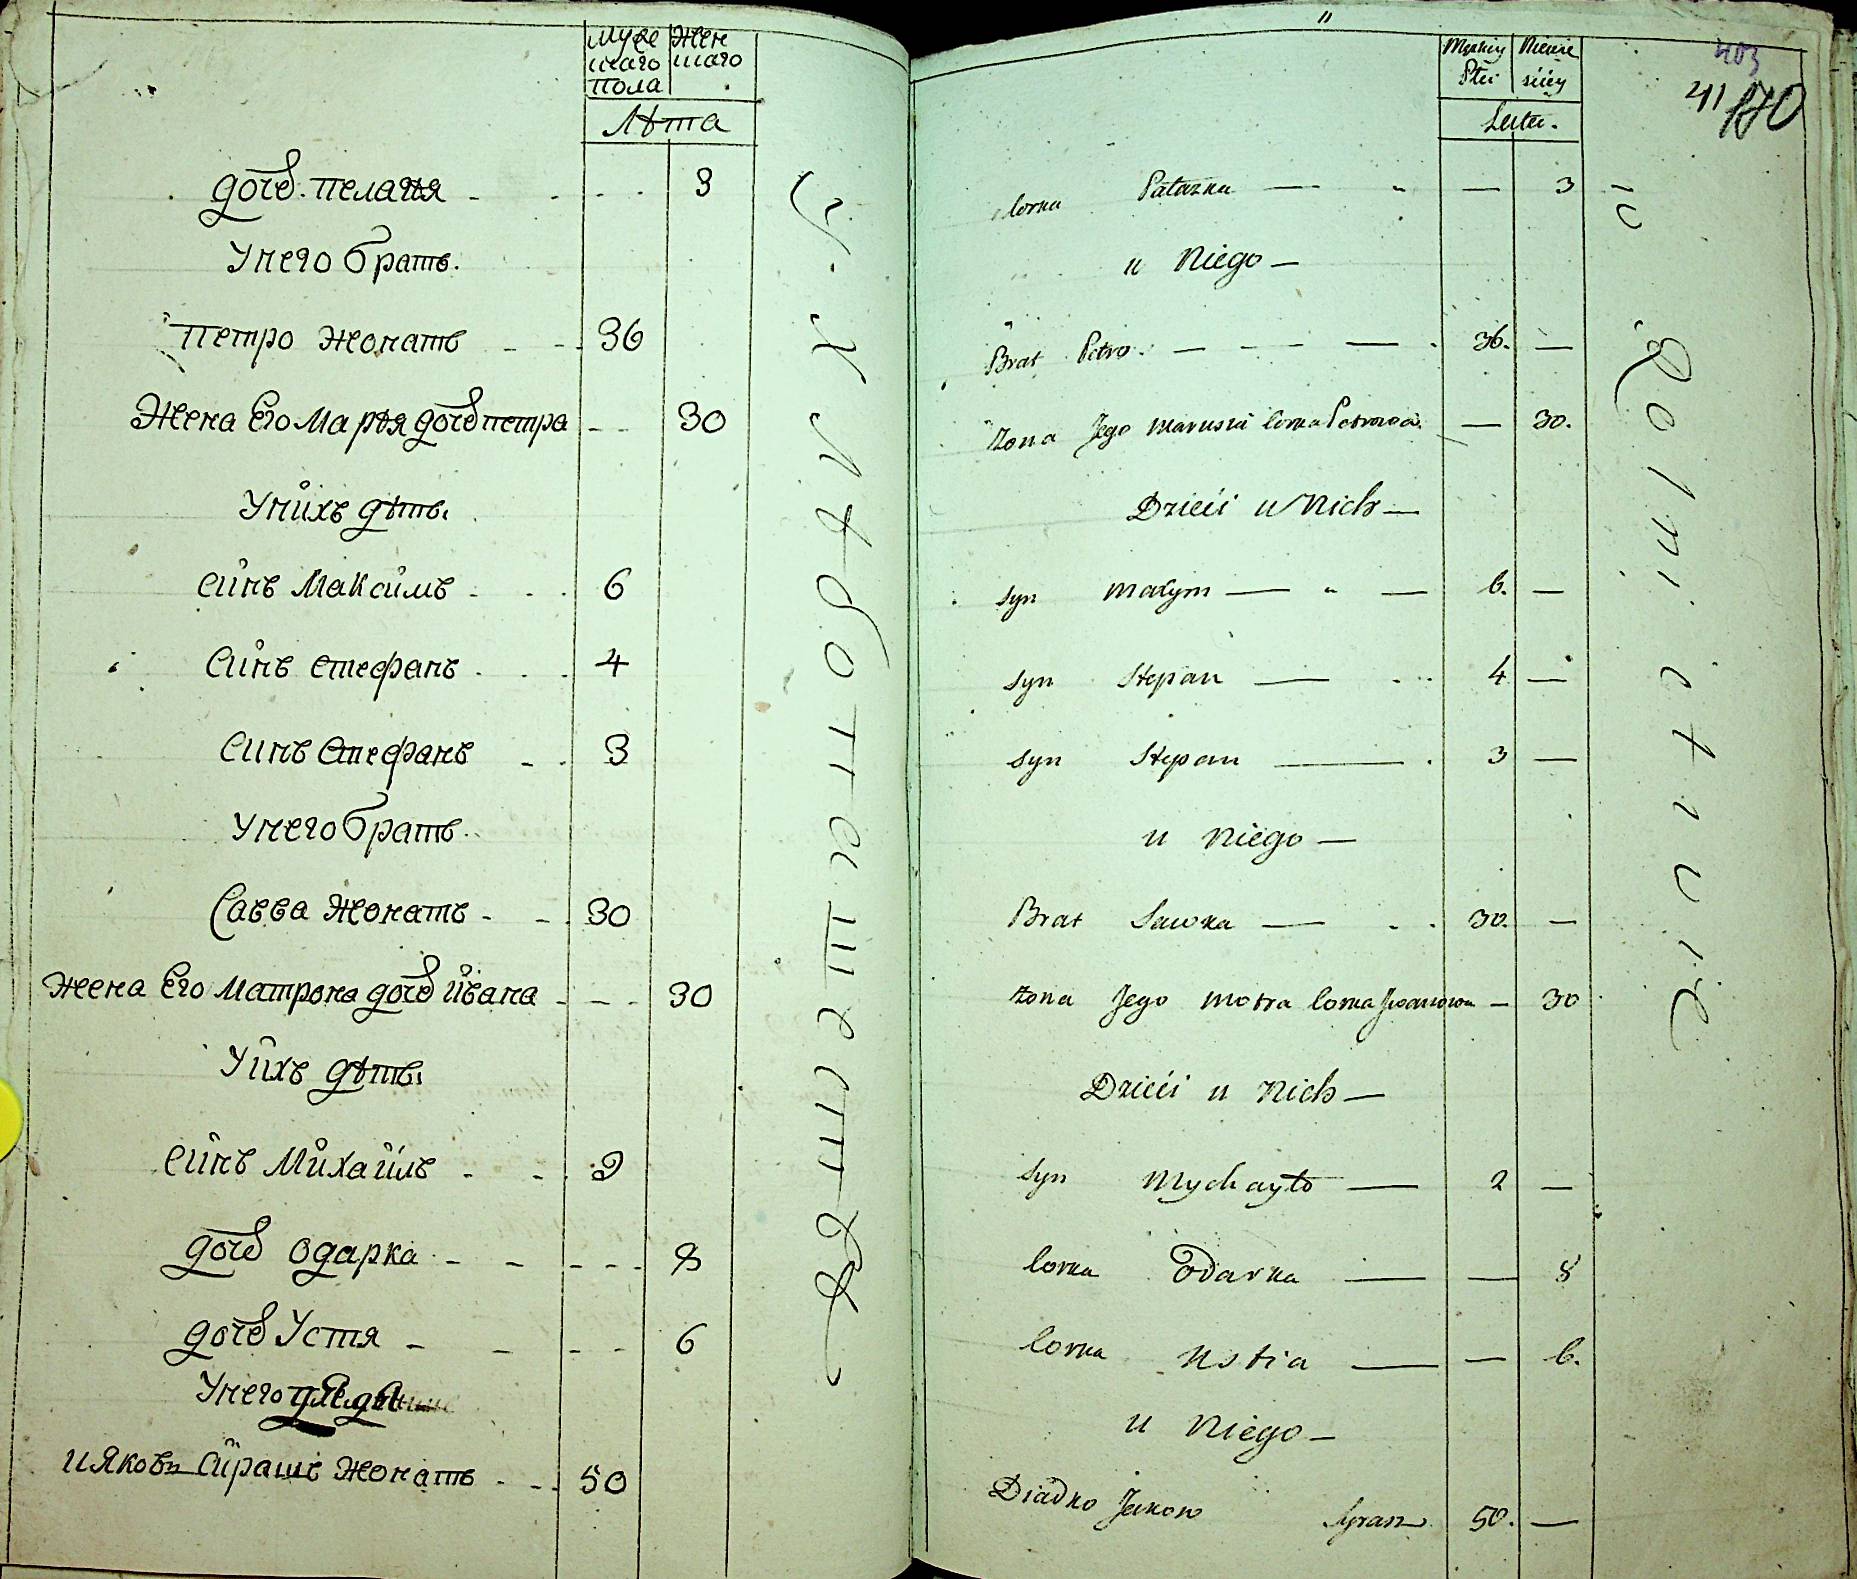 муже
шаго
пола
жен
шаго
Лѣта
дочь пелагия - - - 3
У него братъ.
петро жонатъ - - 36
Жена его Марья дочь петра - - 30
У ныхъ дѣты.
сынъ Максымъ - - 6
Сынъ стефанъ - - 4
Сынъ стефанъ - - 3
У него братъ
Савва жонатъ - - 30
Жена его Матрона дочь ивана - - - 30
У ихъ дѣты
сынъ Михаилъ - - 2
дочь одарка - - - 8
дочь Устя - - - 6
У него дядя
ияковъ Сырашъ жонатъ - - 50
У. Х л ѣ б о п а ш е с т в ѣ
Męskiey
Płci
Niewie
sciey
Letta.
403
41
170
Corka Pałazka — — 3
u Niego —
Brat Petro — — — 36. —
Żona Jego Marusia Corka Petrowa — 30.
Dzieci u Nich —
syn Maxym — — 6. —
syn Stepan — 4 —
syn Stepan — 3 —
u Niego —
Brat Sawka — 30. —
Żona Jego Motra Corka Jwanowa — 30
Dzieci u Nich —
syn Mychayło — 2 —
Corka Odarka — — 8
Corka Ustia — — 6.
u Niego —
Diadko Jakow Syrasz 50. —
w R o l n i c t w i e